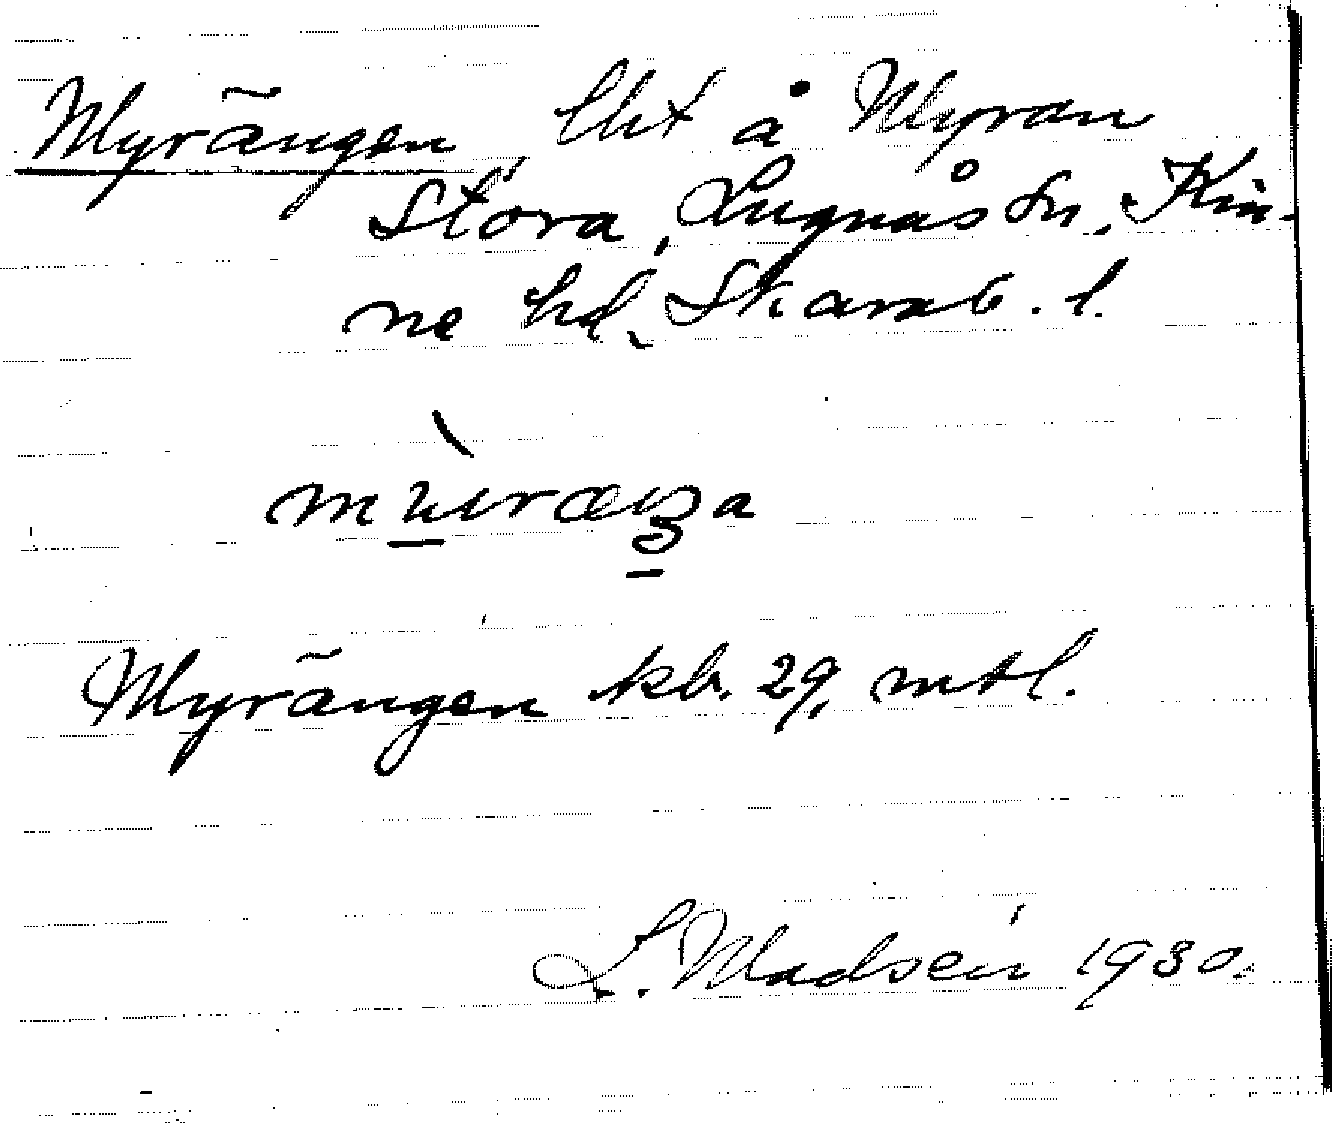 Myrängen, lht å Myran
Stora, Lugnås Sn, Kin-
ne hd, Skarab. l.
Myrängen kb. 29, mtl.
L. Madsén 1930.